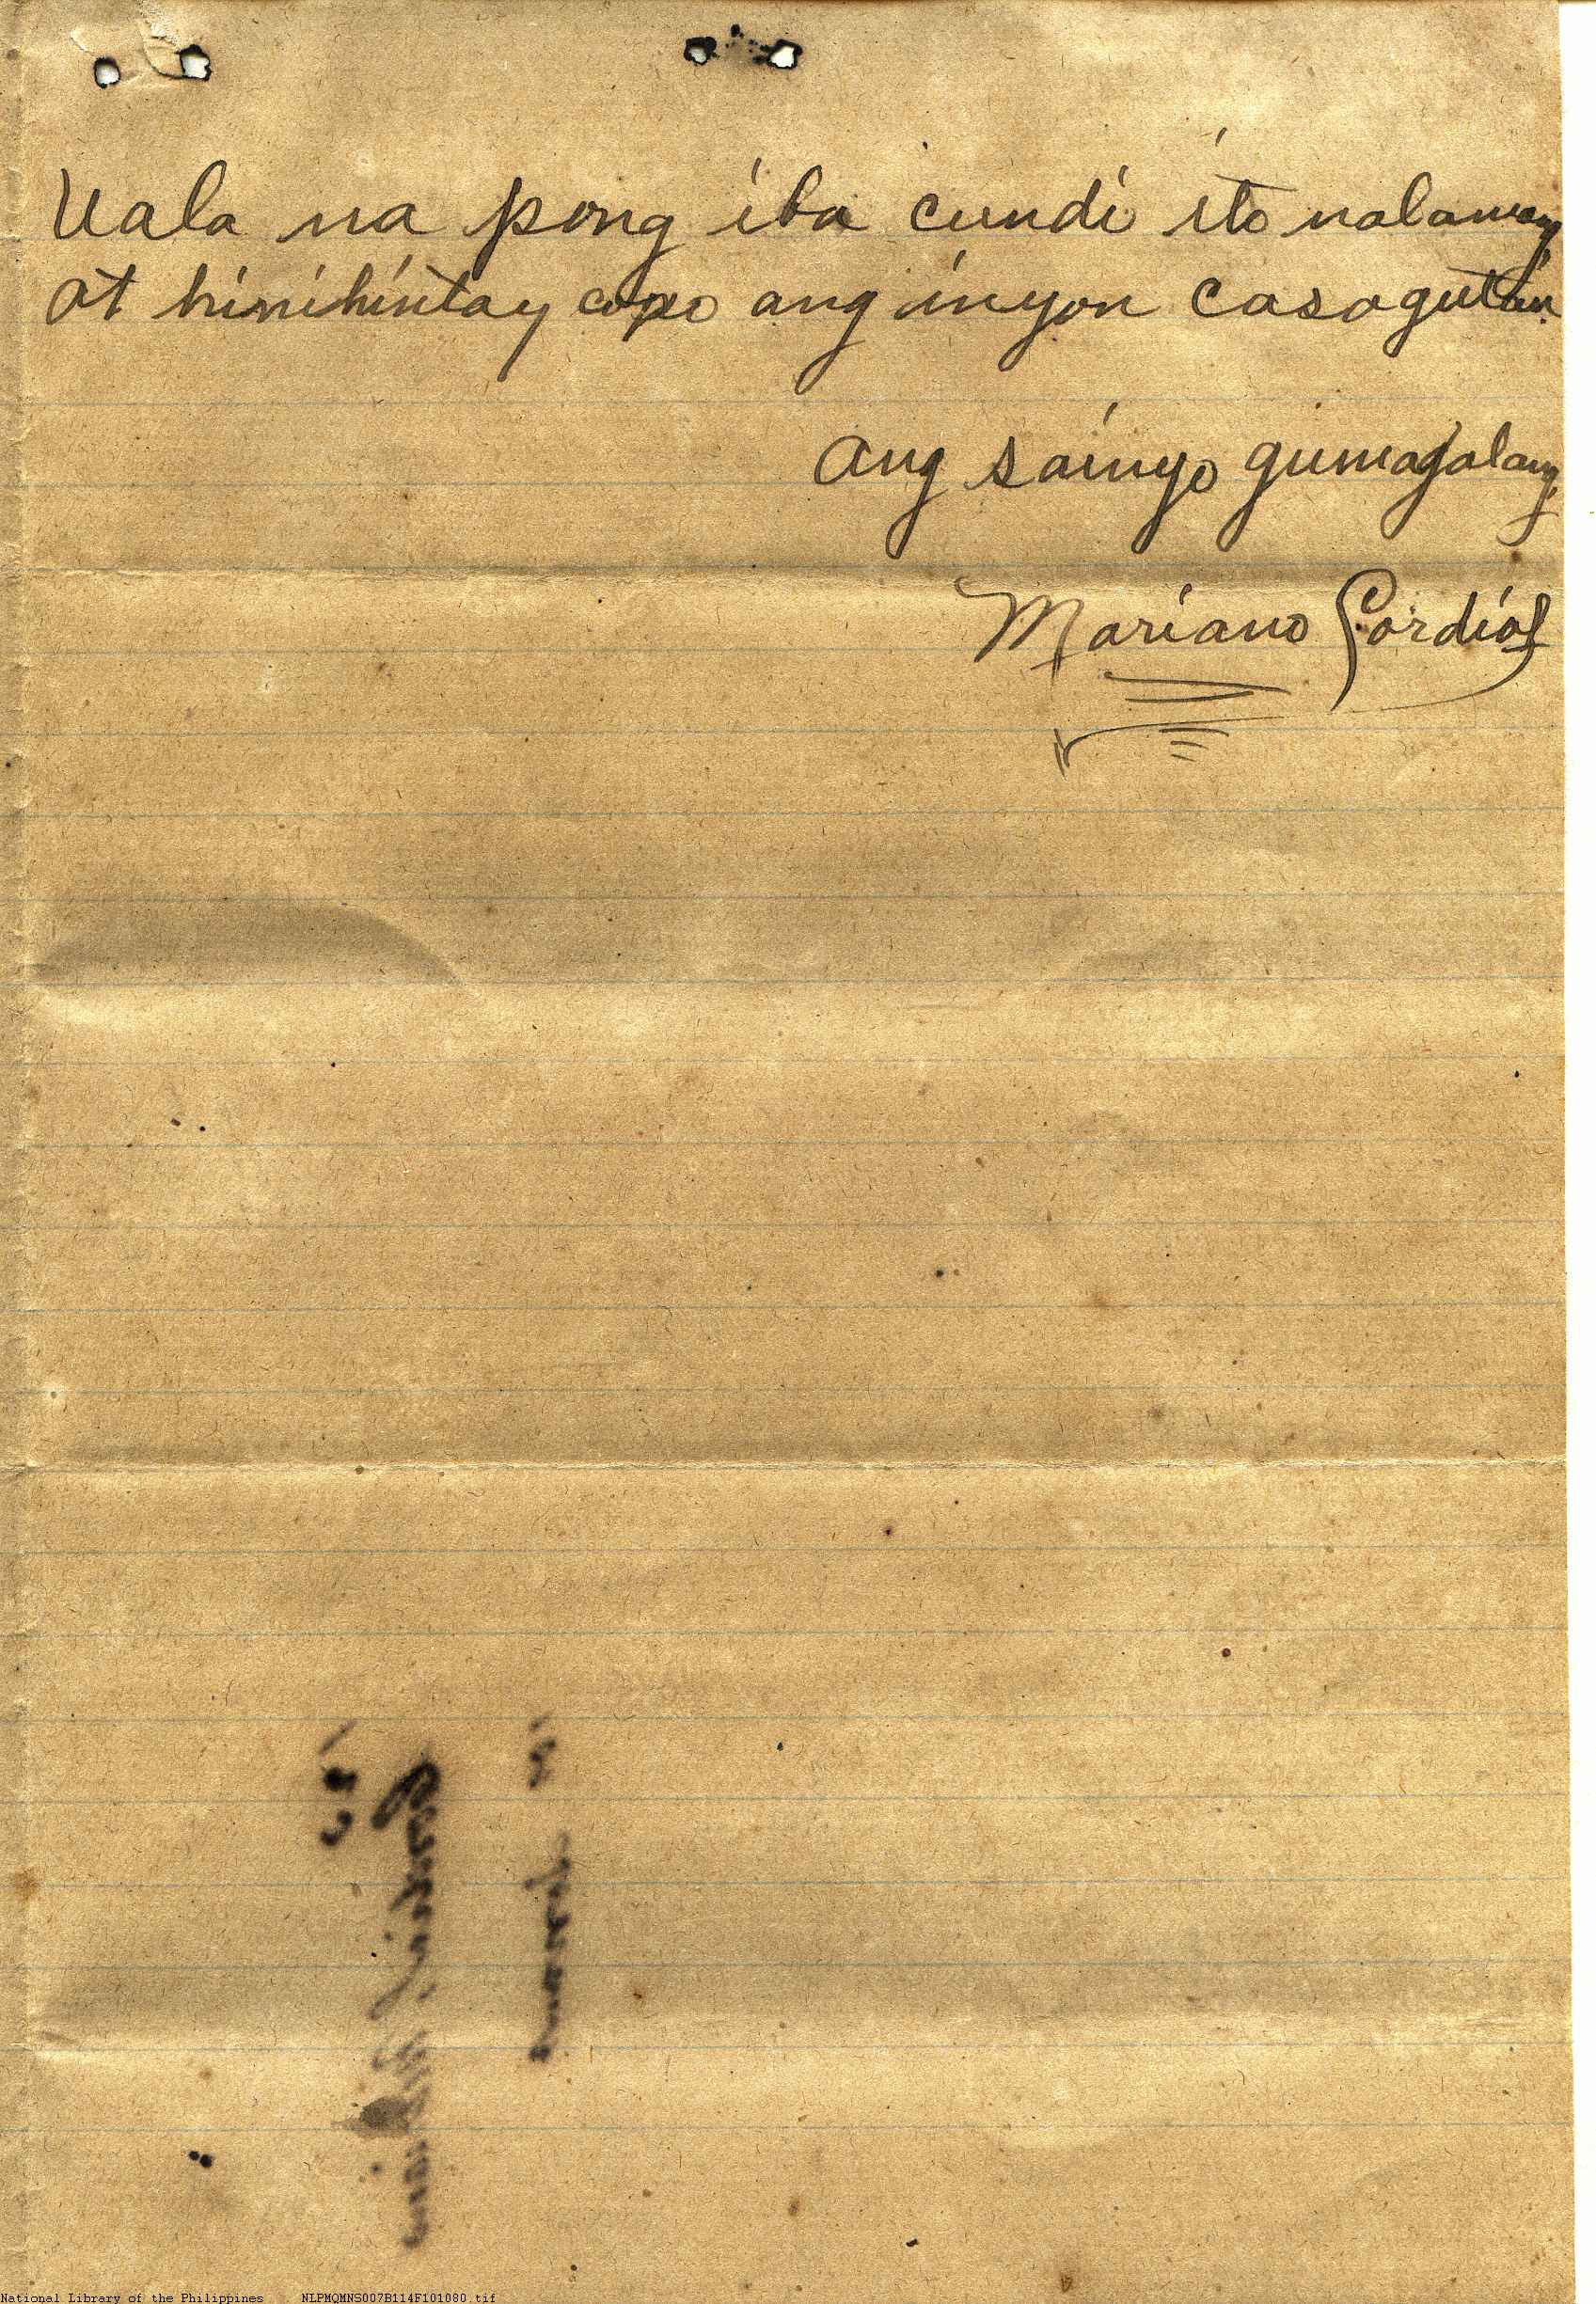 Uala na pong iba cundi ito nalamang
at hinihintay copo ang inyon casagutan.
Ang sainyo gumagalang,
Mariano Gordiof
National Library of the Philippines NLPMQMNS007B114F101080.tif